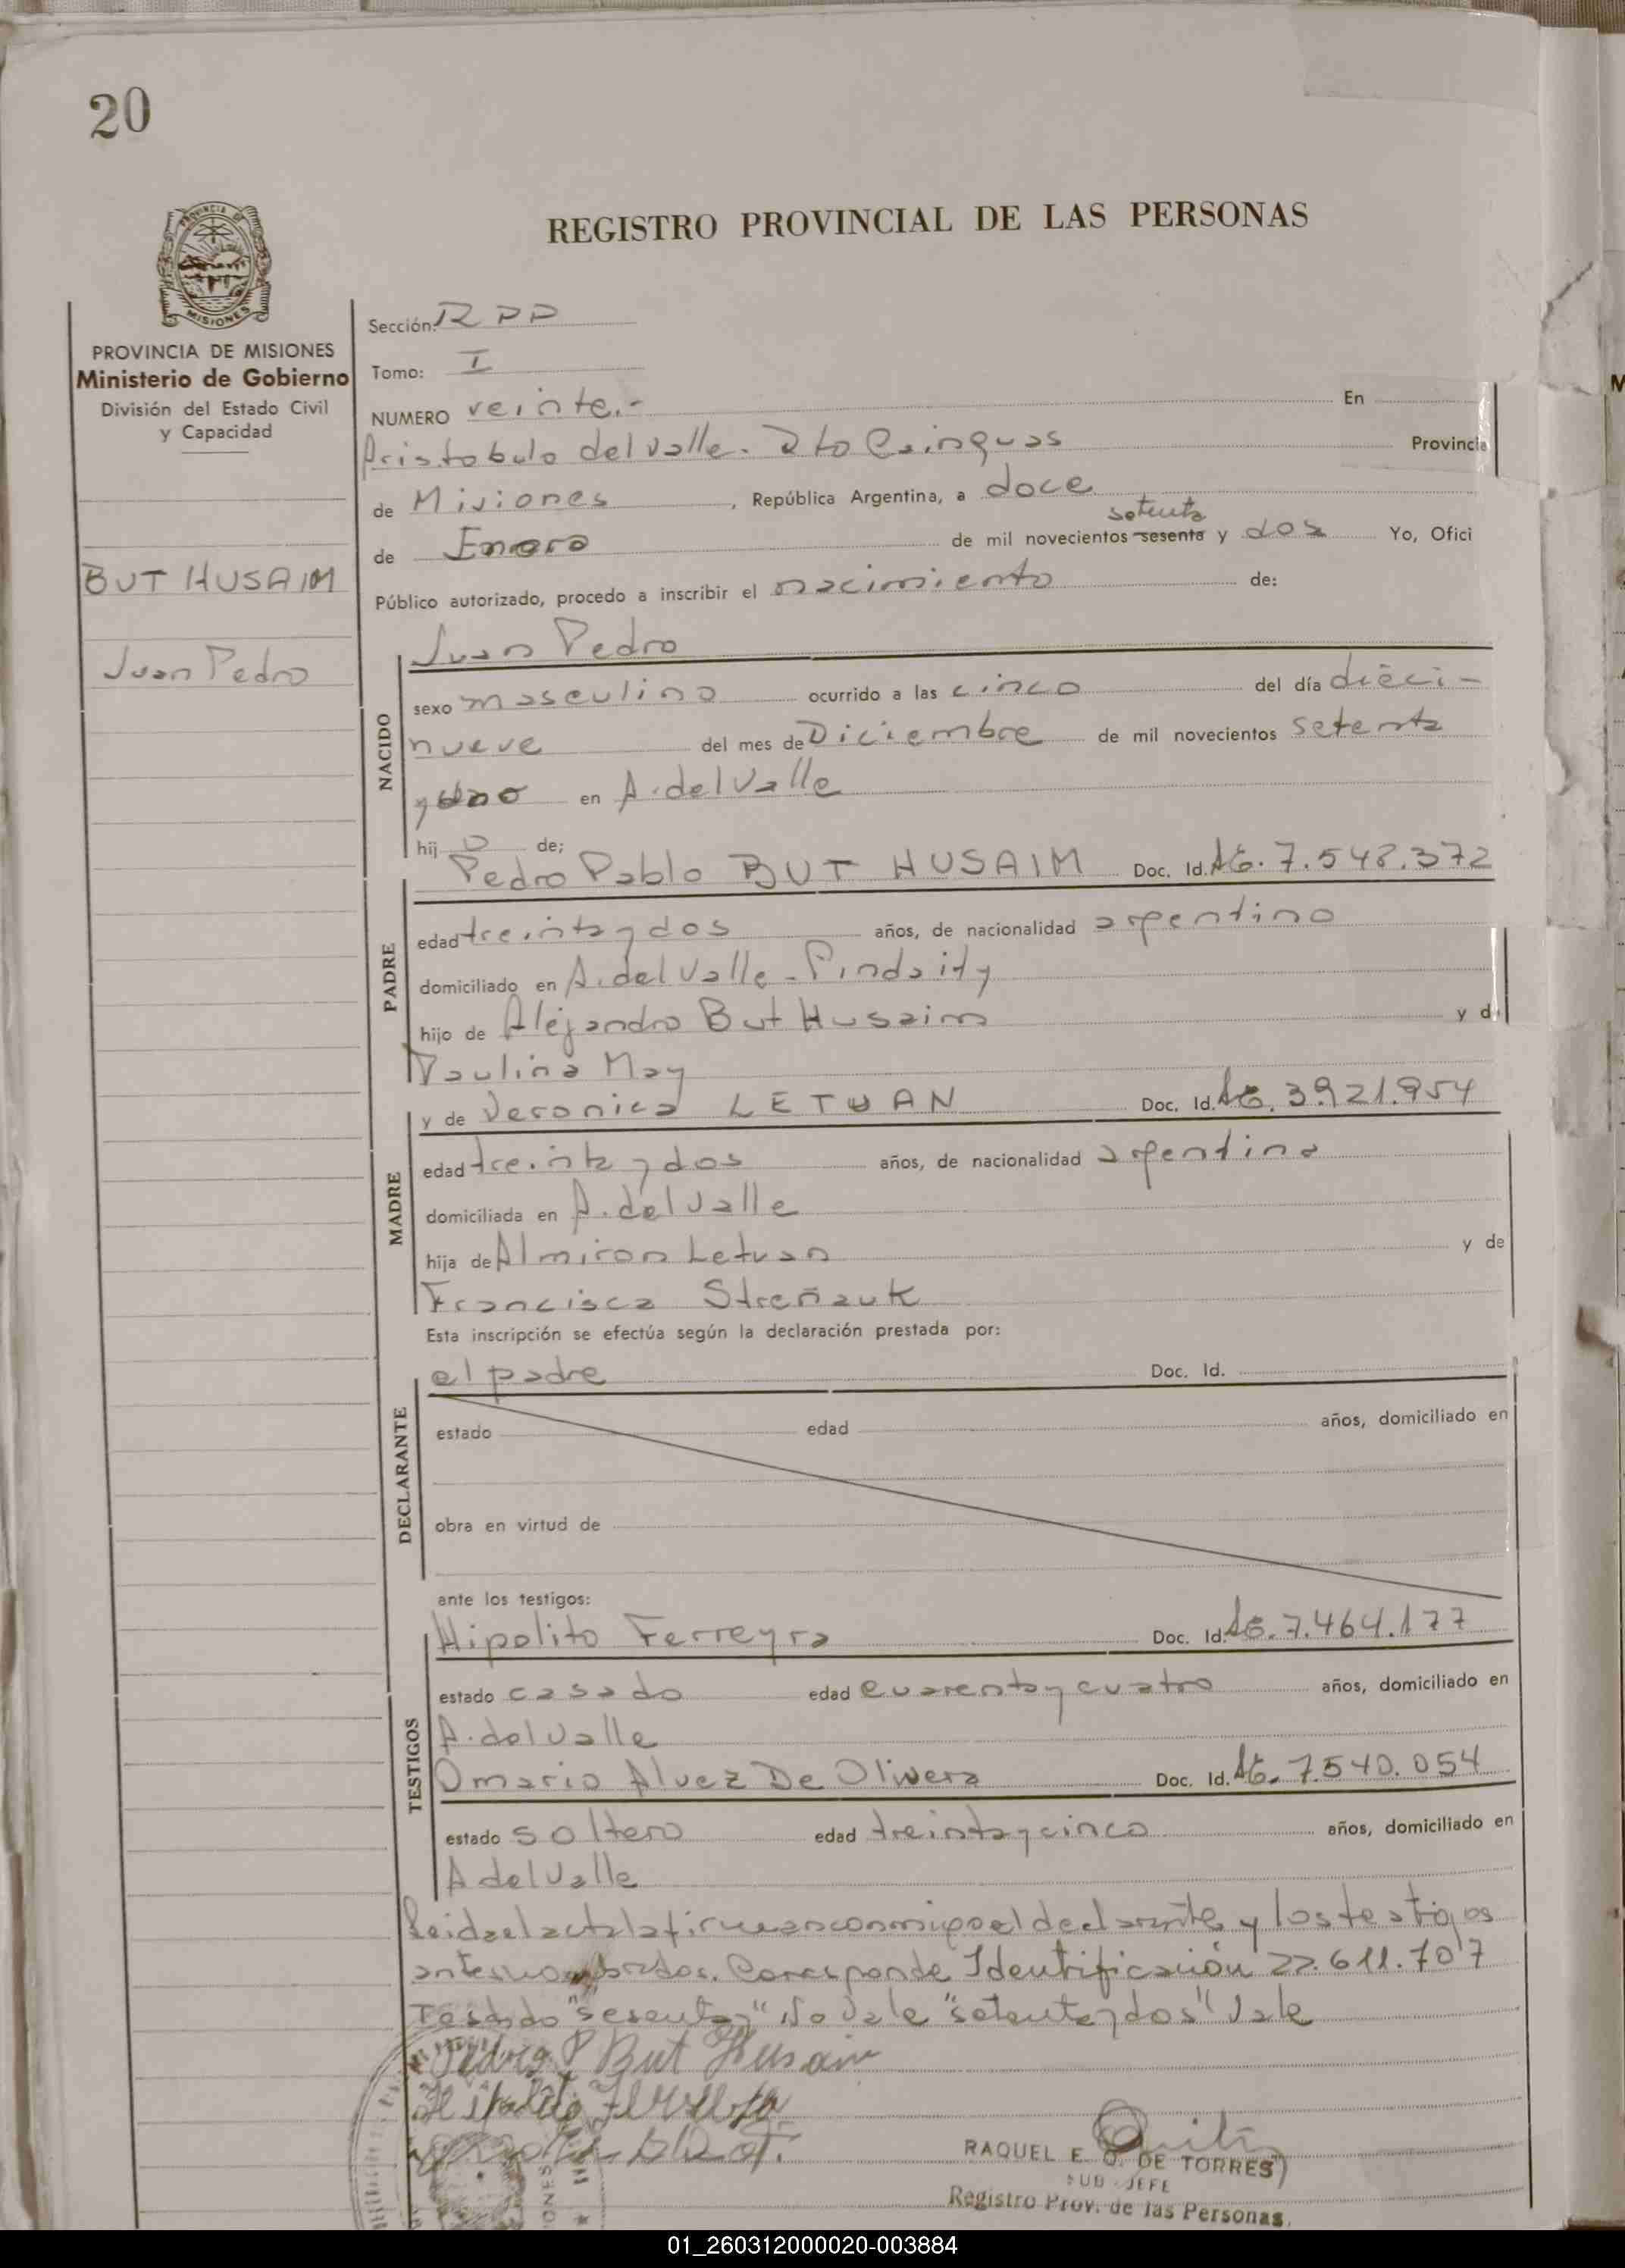 20
REGISTRO PROVINCIAL DE LAS PERSONAS
PROVINCIA DE MISIONES
Ministerio de Gobierno
División del Estado Civil
y Capacidad
BUT HUSAIM
Juan Pedro
Sección: RPP
Tomo: I
NUMERO veinte.- En
Aristobulo del valle. Dto Cainguas Provincia
de Misiones, República Argentina, a doce
setenta
de Enero de mil novecientos sesenta y dos Yo, Ofici
Público autorizado, procedo a inscribir el nacimiento de:
NACIDO
Juan Pedro
sexo masculino ocurrido a las cinco del día dieci-
nueve del mes de Diciembre de mil novecientos setenta
y uno en A. del Valle
hij o de;
PADRE
Pedro Pablo BUT HUSAIM Doc. Id. 7.548.372
edad treinta y dos años, de nacionalidad argentino
domiciliado en A. del Valle - Pindaity
hijo de Alejandro But Husaim y d
Paulina May
MADRE
y de Veronica LETUAN Doc. Id. 3.921.954
edad treinta y dos años, de nacionalidad argentina
domiciliada en A. del Valle
hija de Almiron Letuan y de
Francisca Streñauk
Esta inscripción se efectúa según la declaración prestada por:
DECLARANTE
el padre Doc. Id.
estado edad años, domiciliado en
obra en virtud de
ante los testigos:
TESTIGOS
Hipolito Ferreyra Doc. Id. 7.464.177
estado casado edad cuarenta y cuatro años, domiciliado en
A. del Valle
Omario Alvez De Olivera Doc. Id. 7.540.054
estado soltero edad treinta y cinco años, domiciliado en
A del Valle
Leida el acta la firman conmigo el declarante y los testigos
antes nombrados. Corresponde Identificación 22.611.707
Testado "sesenta" No Vale "setenta y dos" Vale
Pedro P But Husaim
Hipolito Ferreyra
RAQUEL E. O. DE TORRES
SUB-JEFE
Registro Prov. de las Personas.
01_260312000020-003884